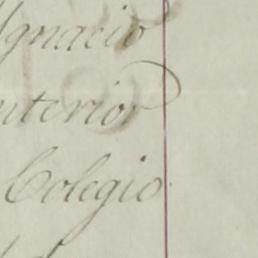 Ignacio
nterior
Colegio